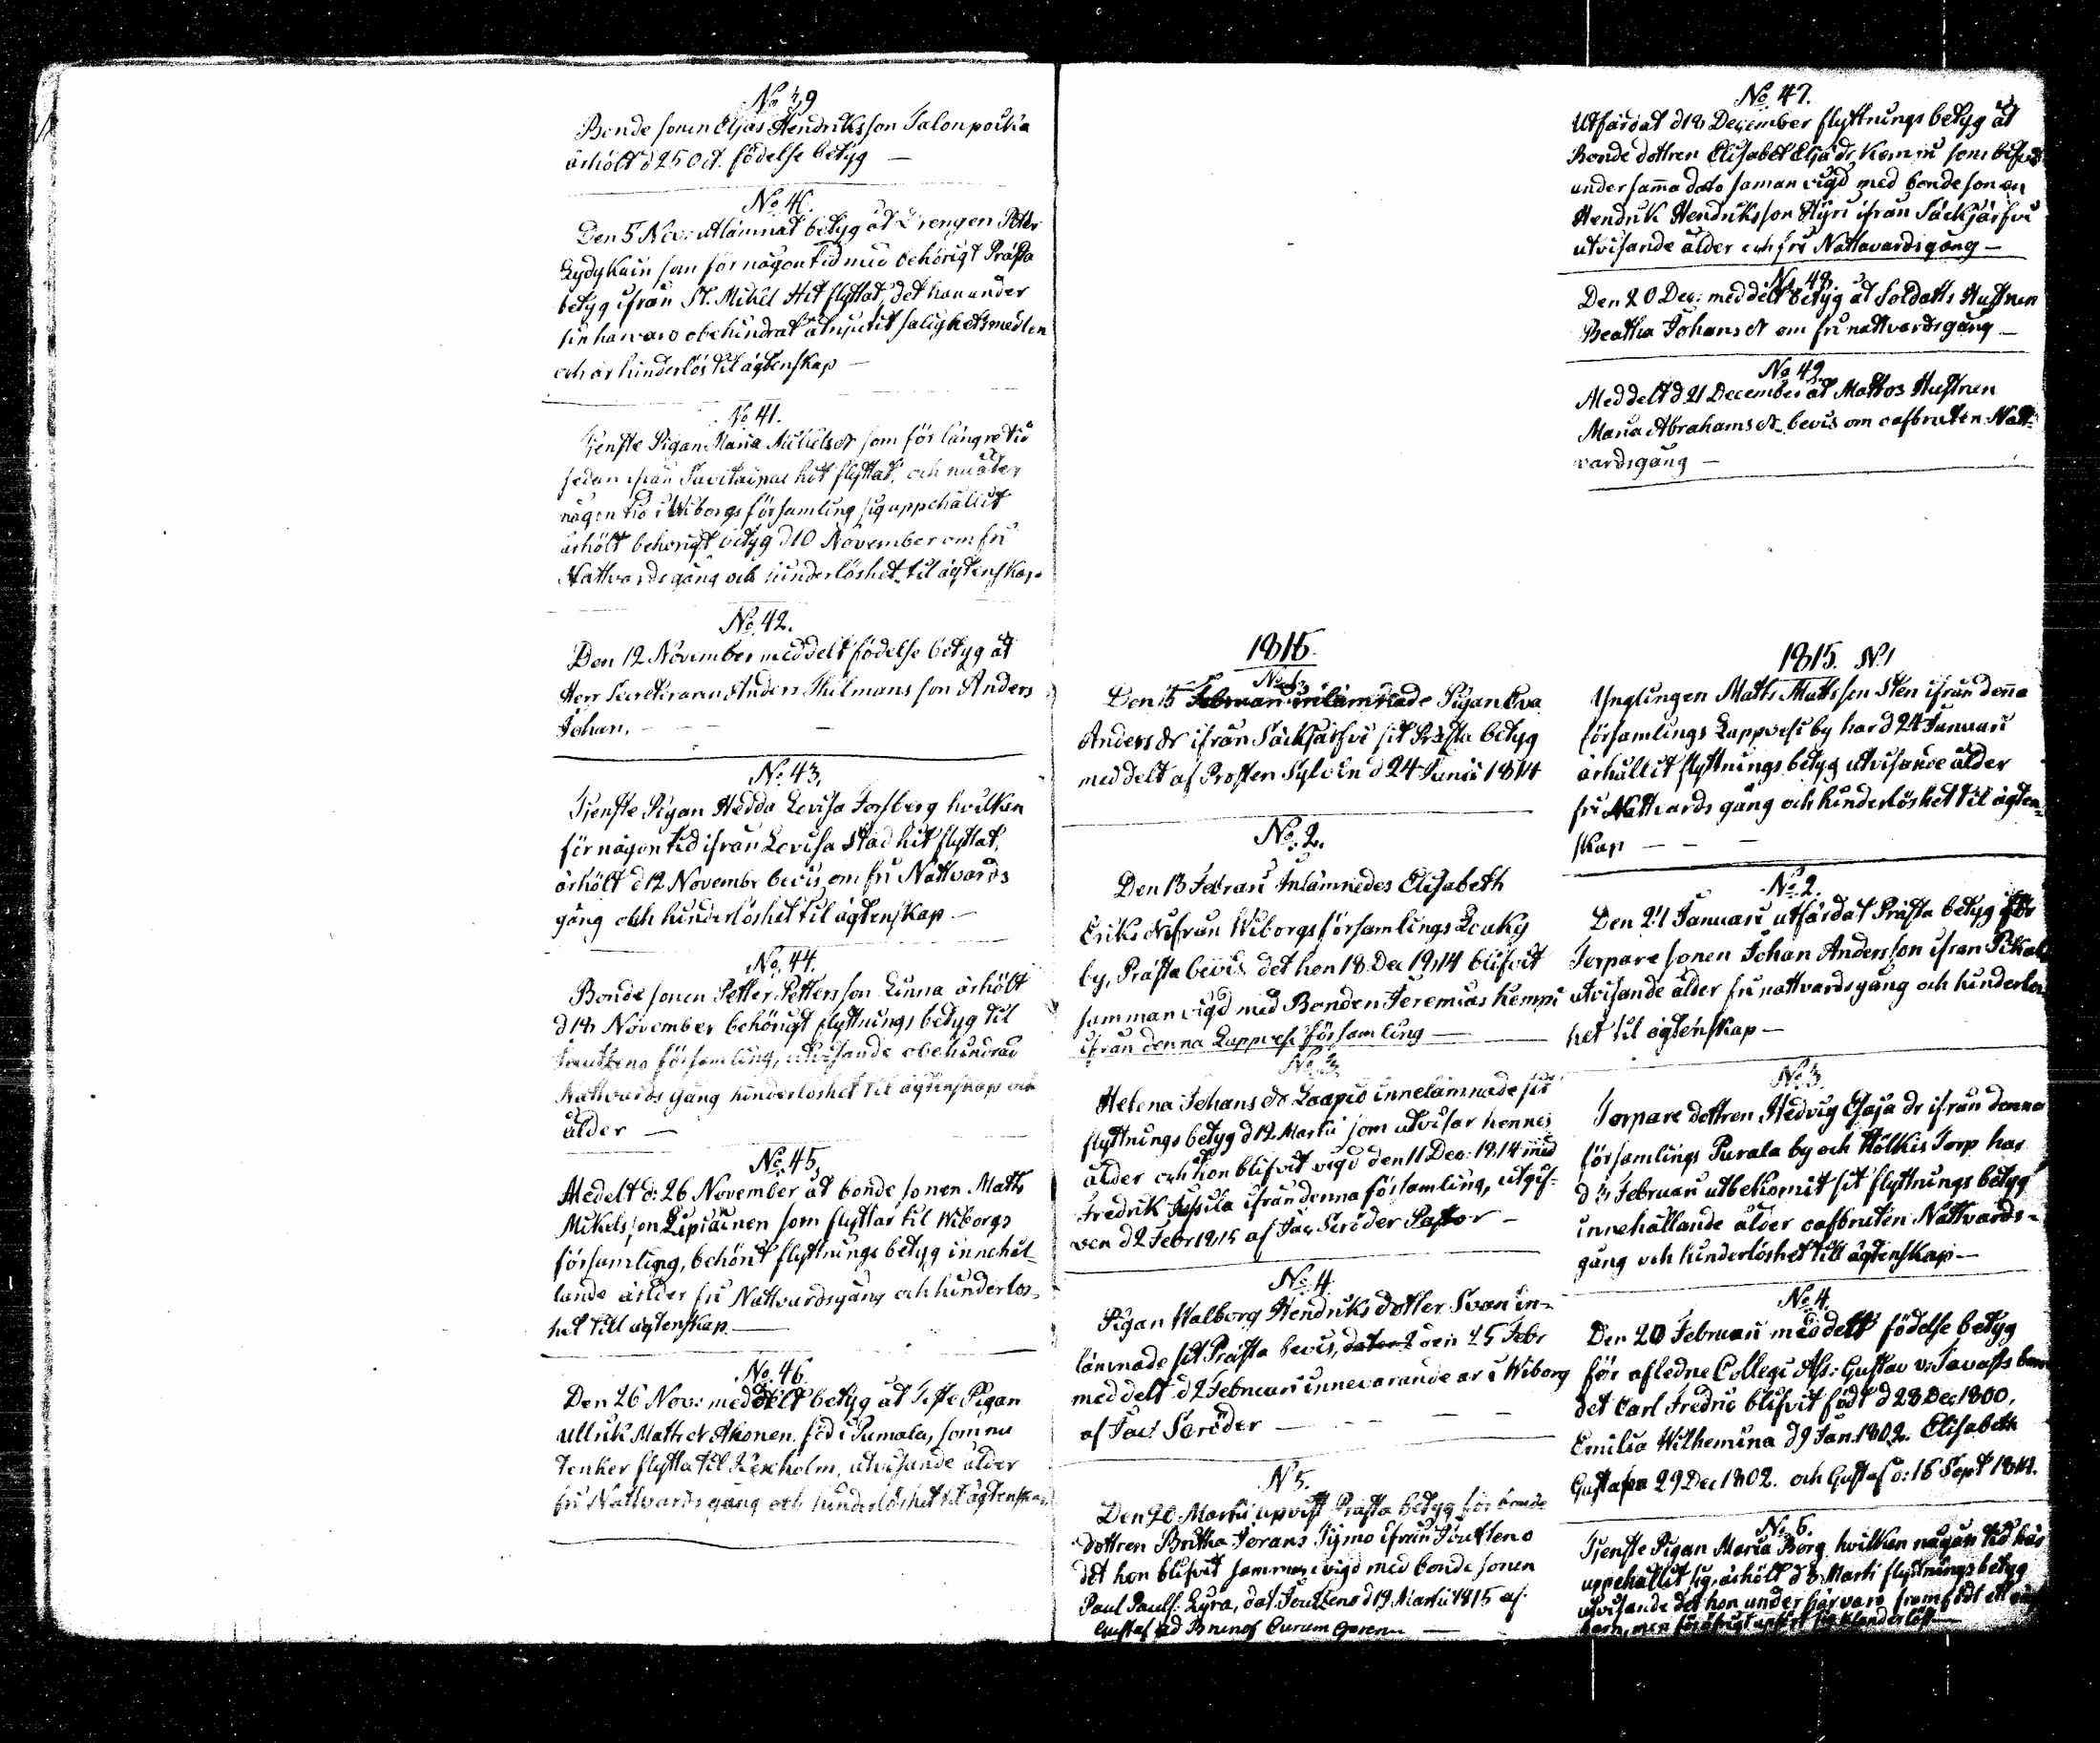 No 39
Bonde sonen Eljas Hendriksson Talonpoika
ärhölt d 25 Oct. födelse betyg —
No 40.
Den 5 Nov: utlämnat betyg åt Drengen Petter
Lydykain som för någon tid med behörigt Prästa
betyg ifrån St. Mikel Hit flyttat, det han under
sin harvaro obehindrat åtnjutit salighetsmedlen
och är hinderlös til ägtenskap —
No 41.
Tjenste Pigan Maria Mickelsdr som för längre tid
sedan ifrån Savitaipal hit flyttat, och nu åter
någon tid i Wiborgs församling sig uppehållit
ärhölt behörigt betyg d 10 November om fri
Nattvardsgång och hinderlöshet til ägtenskap.
No 42.
Den 12 November meddelt födelse betyg åt
Herr Secreteraren Anders Thilmans son Anders
Johan. — — —
No 43.
Tjenste Pigan Hedda Lovisa Forsberg hvilken
för någon tid ifrån Lovisa Stad hit flyttat,
ärhölt d 12 Novembr bevis om fri Nattvards
gång och hinderlöshet til ägtenskap —
No 44.
Bonde sonen Petter Petters son Linna ärhölt
d 18 November behörigt flyttnings betyg til
Joutseno församling, utvisande obehindrad
Nattvards gång hinderlöshet til ägtenskap och
ålder —
No 45.
Medelt d: 26 November åt bonde sonen Matts
Mikelsson Lipiäinen som flyttar til Wiborgs
församling, behörit flyttnings betyg innehål-
lande ålder fri Nattvardsgång och hinderlös-
het till ägtenskap. —
No 46.
Den 26 Nov: meddelt betyg åt Pigan
Ullrik Mattsdr Ahonen, föd i Pumala, som nu
tenker flytta til Kexholm, utvisande ålder
fri Nattvards gång och hinderlöshet til ägtenskap
1815.
No 1.
Den 15 Februari inlämnade Pigan Eva
Anders dr ifrån Säckjärfvi sit Prästa betyg
meddelt af Prosten Sylvin d 24 Junii 1814
No. 2.
Den 13 Februari Inlämnedes Elisabeth
Eriks dr ifrån Wiborgs församlings Kouky
by, Prästa bevis det hon 18 Dec 1814 blifvit
samman vigd med Bonden Jeremias Kempi
ifrån denna Lappvesi församling —
No 3.
Helena Johans dr Laapio innelämnade sit
flyttnings betyg d 12 Martii som utvisar hennes
ålder och at hon blifvit vigd den 11 Dec: 1814 med
Fredrik Jussila ifrån denna församling, utgif-
ven d 2 Febr 1815 af Jac Seröder Pastor —
No. 4
Pigan Walborg Hendriks dotter Svan in-
lämnade sit Prästa bevis, den 25 Febr
meddelt d 2 Februari innevarande år i Wiborg
af Jac: Seröder — — — —
N 5.
Den 20 Martii upvist Prästa betyg för bonde
dottren Britha Jörans Tijmo ifrån Joutseno
det hon blifvit samman vigd med bonde sonen
Paul Pauls: Lyra, dat Joutseno d 19 Martii 1815 af
Gustaf Ad Brunof Curam Gerens —
No. 47.
Utfärdat d 18 December flyttnings betyg åt
Bonde dottren Elisabet Elja dr Kempi som blifvit
under samma dato saman vigd med bonde sonen
Hendrik Hendriksson Hyri ifrån Säckjärfvi
utvisande ålder och fri Nattavardsgång —
No. 48.
Den 20 Dec: meddelt betyg åt Soldatts Hustrun
Beatha Johans dr om fri nattvardsgång —
No 49.
Meddelt d 21 December åt Mattos Hustrun
Maria Abrahams dr bevis om oafbruten Natt-
vardsgång —
1815. N 1
Ynglingen Matts Mattsson Sten ifrån denna
församlings Lappvesi by har d 24 Januari
ärhållit flyttnings betyg utvisande ålder
fri Nattvards gång och hinderlöshet til ägten-
skap — — —
No. 2.
Den 21 Januari utfärdat Prästa betyg för
Torpare sonen Johan Andersson ifrån
utvisande ålder fri nattvardsgång och hinderlös
het til ägtenskap —
No 3.
Torpare dottren Hedvig Esaja dr ifrån denna
församlings Purala by och Hölkis Torp har
d 3 Februari utbekomit sit flyttnings betyg
innehållande ålder oafbruten Nattvards-
gång och hinderlöshet till ägtenskap —
No 4.
Den 20 Februari meddelt födelse betyg
för afledne Collegi Ass: Gustav v: Tavasts barn
det Carl Fredric blifvit född d 28 Dec 1800,
Emilia Wilhemina d 9 Jan. 1802. Elisabeth
Gustafva 29 Dec 1802. och Gustaf d: 16 Sept 1804.
No 5.
Tjenste Pigan Maria Borg hvilken någon tid här
uppehållit sig, ärhölt d 3 Marti flyttnings betyg
utvisande det hon under härvaro framfödt ett
barn, men för öfrigt upfört sig klanderlöst —